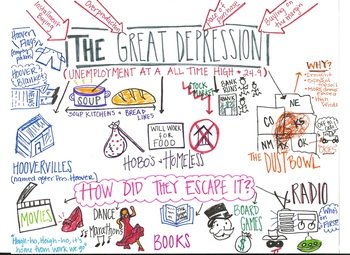 Installment Buying
Overproduction
out of purchase
Buying on the Margin
THE GREAT DEPRESSION
(UNEMPLOYMENT AT A ALL TIME HIGH • 24.9)
Hoover Flags
(empty pockets)
Hoover Blankets
SOUP
SOUP KITCHENS + BREAD LINES
STOCK MARKET
BANK RUNS
BANK
WHY?
High Winds
CO
NE
KS
NM
OK
THE DUST BOWL
WILL WORK FOR FOOD
HOBO'S + HOMELESS
HOOVERVILLES
(named after Pres. Hoover)
HOW DID THEY ESCAPE IT?
MOVIES
DANCE Marathons
BOOKS
BOARD GAMES
RADIO
Who's on First
Heigh-ho, Heigh-ho, it's home from work we go